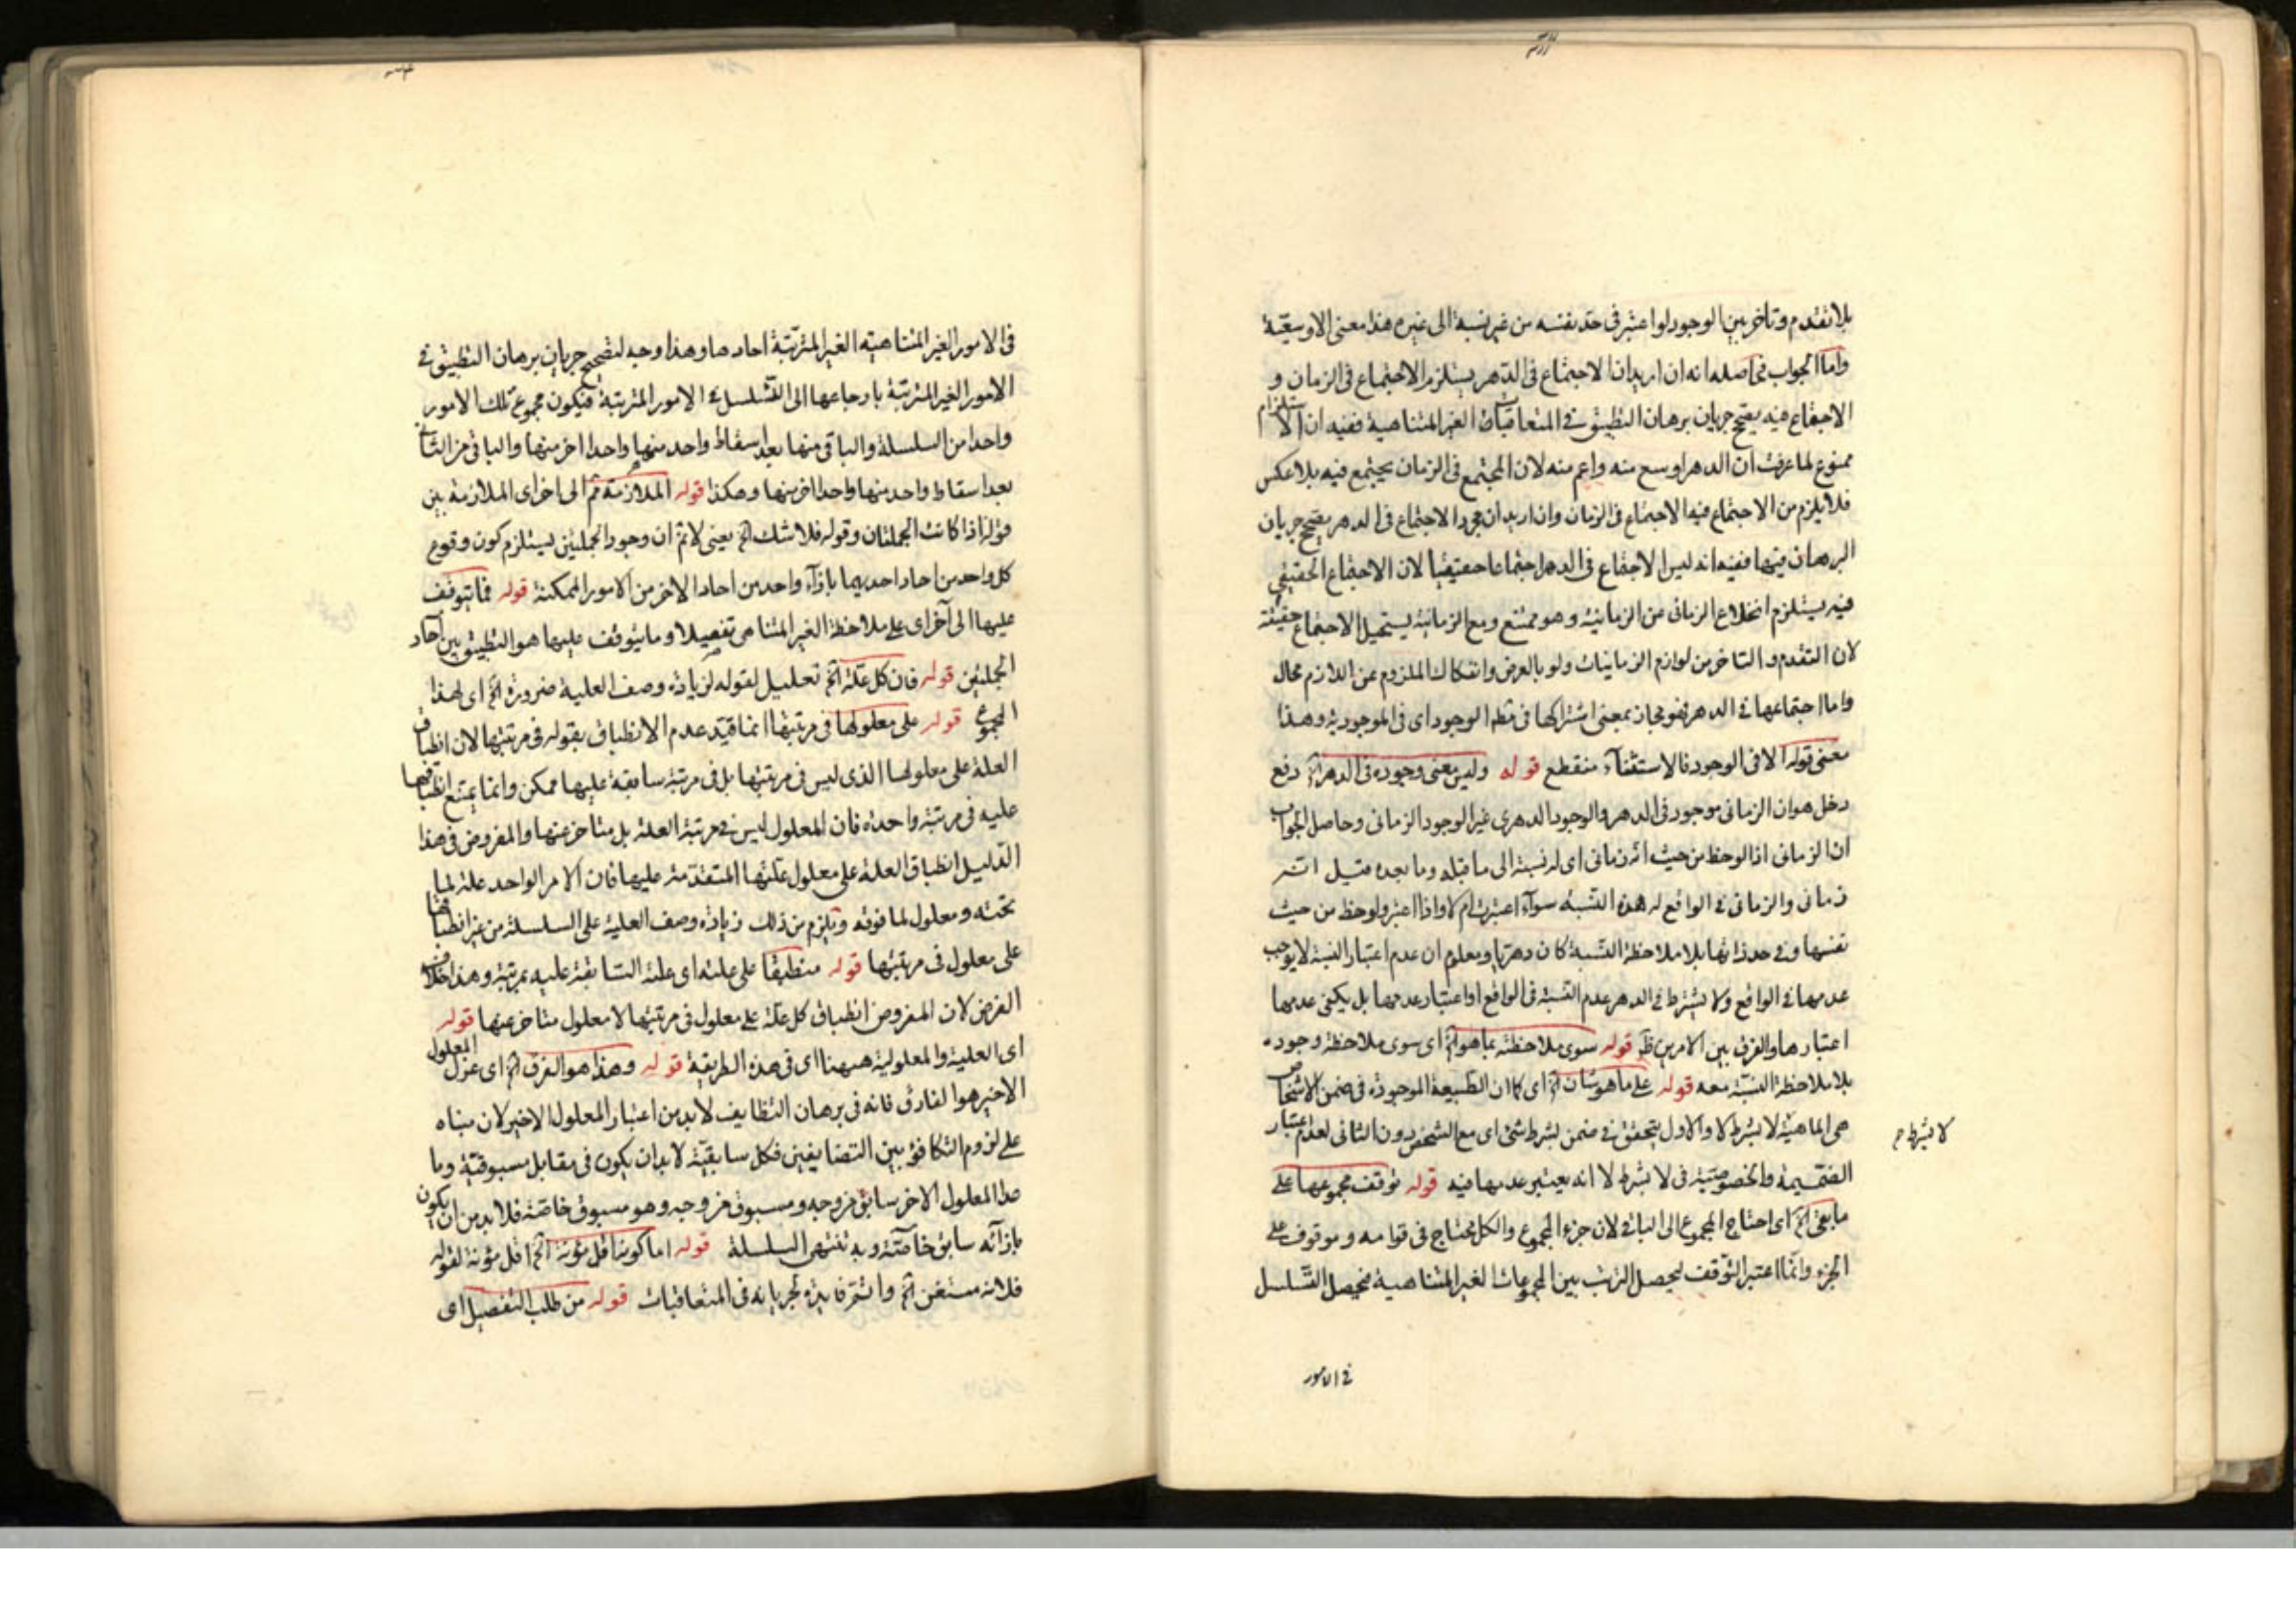 بلا تقدم وتاخر بين الوجود لو اعتبر فى حد نفسه من غير نسبة الى غيره هذا معنى الاوسعيّة
واما الجواب فحاصله انه ان اريد ان الاجتماع فى الدهر يستلزم الاجتماع فى الزمان و
الاجتماع فيه يصحح جريان برهان التطبيق فى المتعاقبات الغير المتناهية ففيه ان الاستلزام
ممنوع لما عرفت ان الدهر اوسع منه واعم منه لان المجتمع فى الزمان يجتمع فيه بلا عكس
فلا يلزم من الاجتماع فيه الاجتماع فى الزمان وان اريد ان مجرد الاجتماع فى الدهر يصحح جريان
البرهان فيها ففيه انه ليس الاجتماع فى الدهر اجتماعا حقيقيا لان الاجتماع الحقيقي
فيه يستلزم انخلاع الزمانى من الزمانية وهو ممتنع ومع الزمانية يستحيل الاجتماع حقيقة
لان التقدم والتاخر من لوازم الزمانيات ولو بالعرض وانفكاك الملزوم عن اللازم محال
واما اجتماعها فى الدهر فهو مجاز بمعنى اشتراكها فى الوجود اى فى الموجودية وهذا
معنى قوله الا فى الوجود فالاستثناء منقطع قوله وليس معنى وجوده فى الدهر الخ دفع
دخل هو ان الزمانى موجود فى الدهر والوجود الدهرى غير الوجود الزمانى وحاصل الجواب
ان الزمانى اذا لوحظ من حيث انه زمانى اى له نسبة الى ما قبله وما بعده قيل انه
زمانى والزمانى فى الواقع له هذه النسبة سواء اعتبرت ام لا واذا اعتبر ولوحظ من حيث
نفسها وفى حد ذاتها بلا ملاحظة النسبة كان دهريا ومعلوم ان عدم اعتبار النسبة لا يوجب
عدمها فى الواقع ولا يشترط فى الدهر عدم النسبة فى الواقع او اعتبار عدمها بل يكفى عدمها
اعتبارها والفرق بين الامرين ظ قوله سوى ملاحظته بما هو الخ اى سوى ملاحظة وجوده
بلا ملاحظة النسبة معه قوله على ما هو شان الخ اى كما ان الطبيعة الموجودة فى ضمن الاشخاص
هى الماهية لا بشرط لا والاول يتحقق فى ضمن بشرط شئ اى مع الشخص دون الثانى لعدم اعتبار
لا بشرط م
الضميمة والخصوصية فى لا بشرط لا انه يعتبر عدمها فيه قوله توقف مجموعها على
ما بقى الخ اى احتاج المجموع الى الباقى لان جزء المجموع والكل محتاج فى قوامه وموقوف على
الجزء وانما اعتبر التوقف ليحصل الترتب بين المجموعات الغير المتناهية فيحصل التسلسل
فى الامور
فى الامور الغير المتناهية الغير المترتبة احادها وهذا وجه لتصحيح جريان برهان التطبيق فى
الامور الغير المترتبة بارجاعها الى التسلسل فى الامور المترتبة فيكون مجموع تلك الامور
واحدا من السلسلة والباقى منها بعد اسقاط واحد منها واحدا اخر منها والباقى من الثانى
بعد اسقاط واحد منها واحدا اخر منها وهكذا قوله الملازمة مم الى اخر اى الملازمة بين
قوله اذا كانت الجملتان وقوله فلا شك الخ يعنى لا نم ان وجود الجملتين يستلزم كون وقوع
كل واحد من احاد احديهما بازاء واحد من احاد الاخر من الامور الممكنة قوله فما يتوقف
عليها الى آخر اى على ملاحظة الغير المتناهى تفصيلا وما يتوقف عليها هو التطبيق بين آحاد
الجملتين قوله فان كل علة الخ تعليل لقوله لزيادة وصف العلية ضرورة الخ اى لهذا
المجموع قوله على معلولها فى مرتبتها انما قيد عدم الانطباق بقوله فى مرتبتها لان انطباق
العلة على معلولها الذى ليس فى مرتبتها بل فى مرتبة سابقة عليها ممكن وانما يمتنع انطباقها
عليه فى مرتبة واحدة فان المعلول ليس فى مرتبة العلة بل متاخر عنها والمفروض فى هذا
الدليل انطباق العلة على معلول علتها المتقدمة عليها فان الامر الواحد علة لما
تحته ومعلول لما فوقه ويلزم من ذلك زيادة وصف العلية على السلسلة من غير انطباقها
على معلول فى مرتبتها قوله منطبقا على علته اى علته السابقة عليه بمرتبة وهذا خلاف
الفرض لان المفروض انطباق كل علة على معلول فى مرتبتها لا معلول متاخر عنها قوله
اى العلية والمعلولية ههنا اى فى هذه الطريقة قوله وهذا هو الفرق الخ اى عزل المعلول
الاخير هو الفارق فانه فى برهان التضايف لا بد من اعتبار المعلول الاخير لان مبناه
على لزوم التكافؤ بين المتضايفين فكل سابقية لا بد ان يكون فى مقابل مسبوقية وما
عدا المعلول الاخر سابق من وجه ومسبوق من وجه وهو مسبوق خاصة فلا بد من ان يكون
بازائه سابق خاصة وبه تنتهى السلسلة قوله اما كونه اقل مؤنة الخ اقل مؤنة لقوله
فلانه مستغن الخ واتم فايدة لجريانه فى المتعاقبات قوله من طلب التفصيل اى